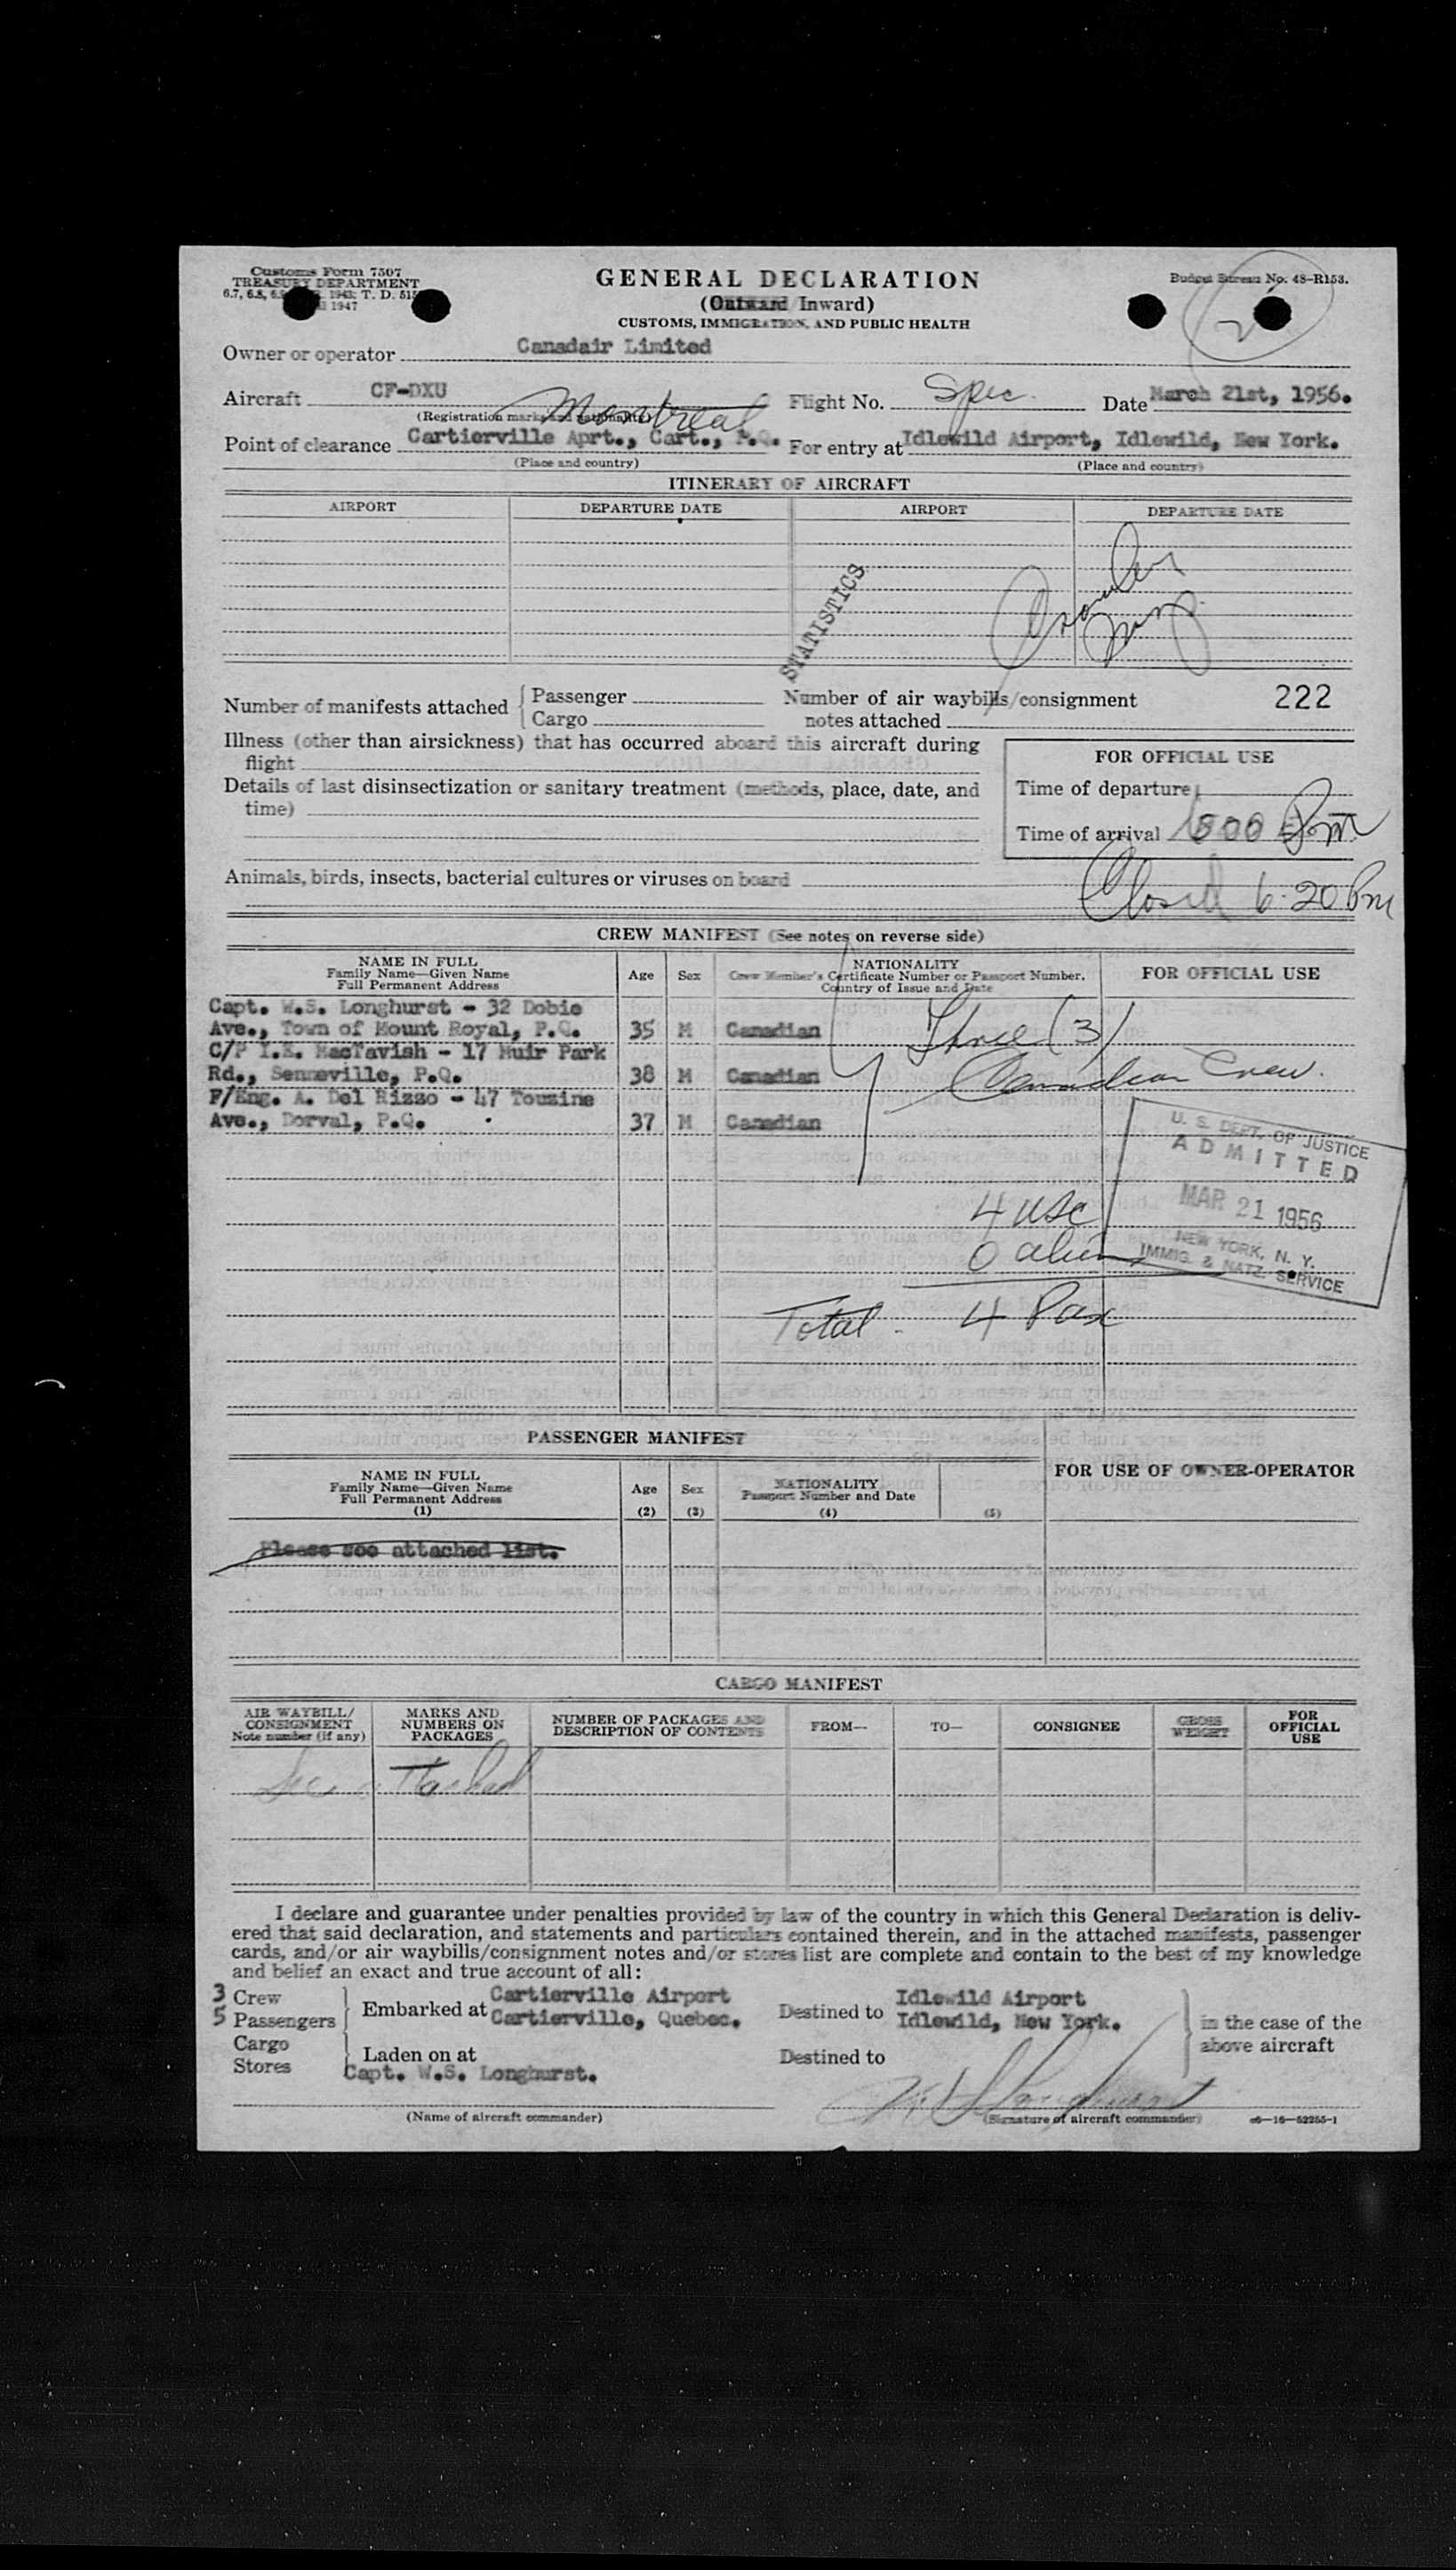 Customs Form 7507
TREASURY DEPARTMENT
1943; T. D.
1947
GENERAL DECLARATION
(Outward Inward)
CUSTOMS, IMMIGRATION, AND PUBLIC HEALTH
Budget Bureau No. 48-R153.
2
Owner or operator Canadair Limited
Aircraft CF-DXU Flight No. Spec. Date March 21st, 1956.
(Registration marks and nationality)
Montreal
Point of clearance Cartierville Aprt., Cart., P.Q. For entry at Idlewild Airport, Idlewild, New York.
(Place and country) (Place and country)
ITINERARY OF AIRCRAFT
AIRPORT DEPARTURE DATE AIRPORT DEPARTURE DATE
STATISTICS
Number of manifests attached { Passenger
Cargo
Number of air waybills/consignment
notes attached
222
Illness (other than airsickness) that has occurred aboard this aircraft during
flight
Details of last disinsectization or sanitary treatment (methods, place, date, and
time)
FOR OFFICIAL USE
Time of departure
Time of arrival Pm
Animals, birds, insects, bacterial cultures or viruses on board
Closed 6:20 Pm
CREW MANIFEST (See notes on reverse side)
NAME IN FULL
Family Name—Given Name
Full Permanent Address
Age Sex
NATIONALITY
Crew Member's Certificate Number or Passport Number,
Country of Issue and Date
FOR OFFICIAL USE
Capt. W.S. Longhurst - 32 Dobie
Ave., Town of Mount Royal, P.Q. 35 M Canadian
C/P I.E. MacTavish - 17 Muir Park
Rd., Senneville, P.Q. 38 M Canadian
F/Eng. A. Del Rizzo - 47 Touzine
Ave., Dorval, P.Q. 37 M Canadian
Three (3)
Canadian Crew.
U. S. DEPT. OF JUSTICE
ADMITTED
MAR 21 1956
NEW YORK, N. Y.
IMMIG. & NATZ. SERVICE
4 USC
0 alien
Total - 4 Pax
PASSENGER MANIFEST
NAME IN FULL
Family Name—Given Name
Full Permanent Address
(1)
Age
(2)
Sex
(3)
NATIONALITY
Passport Number and Date
(4)
(5)
FOR USE OF OWNER-OPERATOR
Please see attached list.
CARGO MANIFEST
AIR WAYBILL/
CONSIGNMENT
Note number (if any)
MARKS AND
NUMBERS ON
PACKAGES
NUMBER OF PACKAGES AND
DESCRIPTION OF CONTENTS
FROM—
TO—
CONSIGNEE
GROSS
WEIGHT
FOR
OFFICIAL
USE
See attached
I declare and guarantee under penalties provided by law of the country in which this General Declaration is deliv-
ered that said declaration, and statements and particulars contained therein, and in the attached manifests, passenger
cards, and/or air waybills/consignment notes and/or stores list are complete and contain to the best of my knowledge
and belief an exact and true account of all:
3 Crew
5 Passengers
Cargo
Stores
Embarked at Cartierville Airport
Cartierville, Quebec.
Destined to Idlewild Airport
Idlewild, New York.
in the case of the
above aircraft
Laden on at
Destined to
Capt. W.S. Longhurst.
W S Longhurst
(Name of aircraft commander)
(Signature of aircraft commander)
16—52255-1